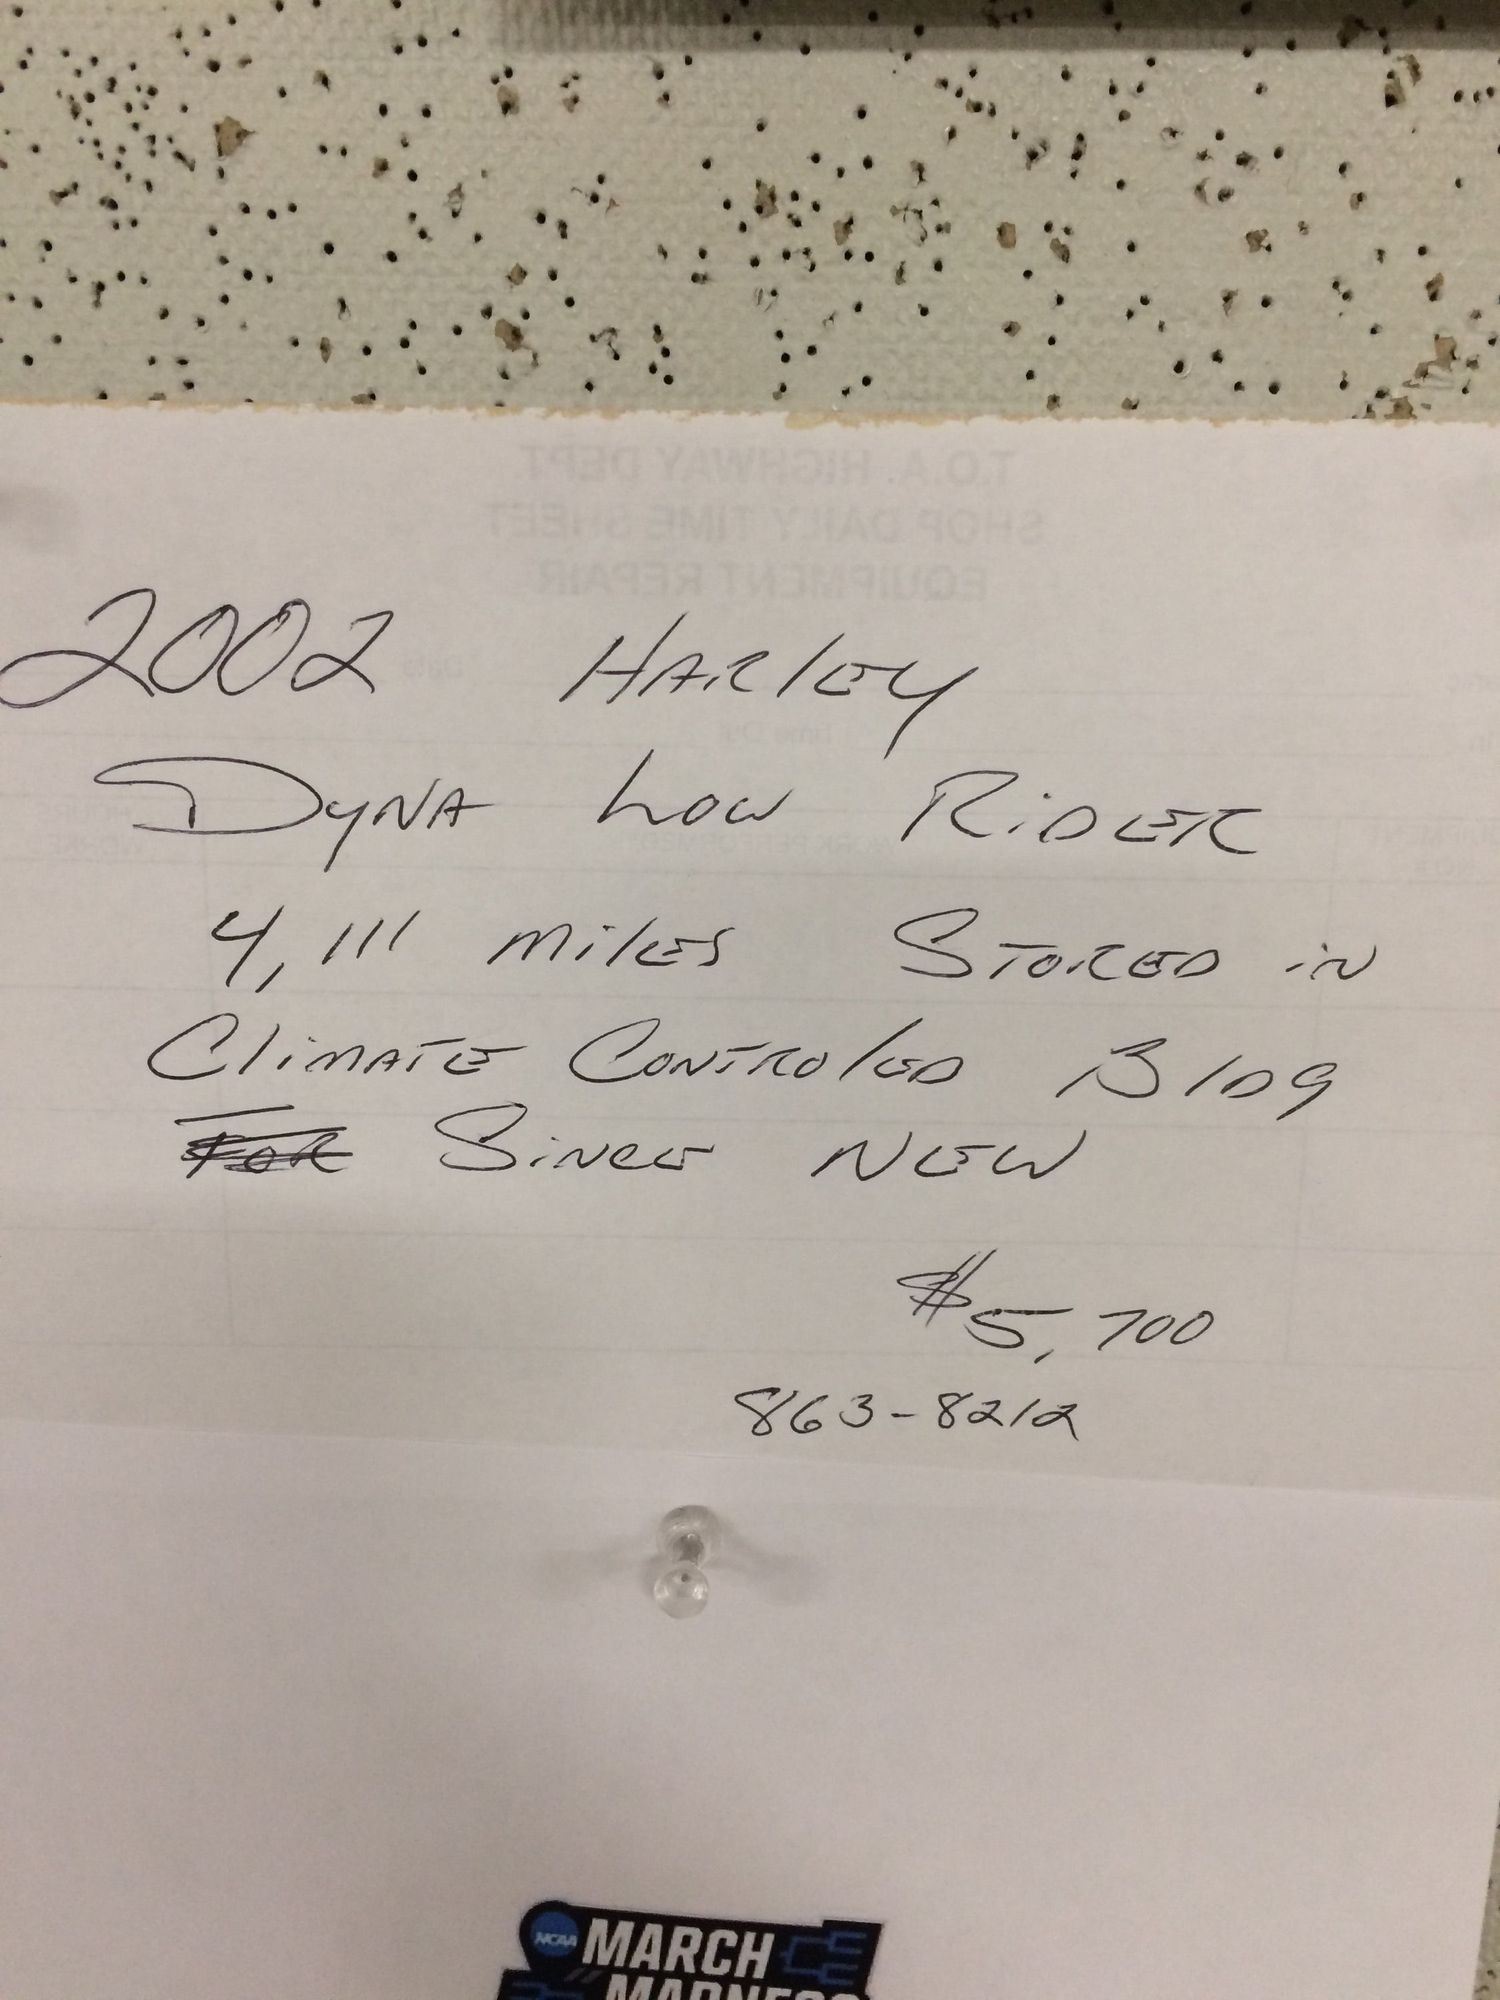 T.O.A. HIGHWAY DEPT
SHOP DAILY TIME SHEET
EQUIPMENT REPAIR
Date
2002 HARlEY
Time Out
DyNA Low RiDER
WORK PERFORMED
4,111 miles STORED iN
CliMATE CONTROlED BlDg
FOR SiNCE NEW
$5,700
863-8212
NCAA MARCH
MADNESS